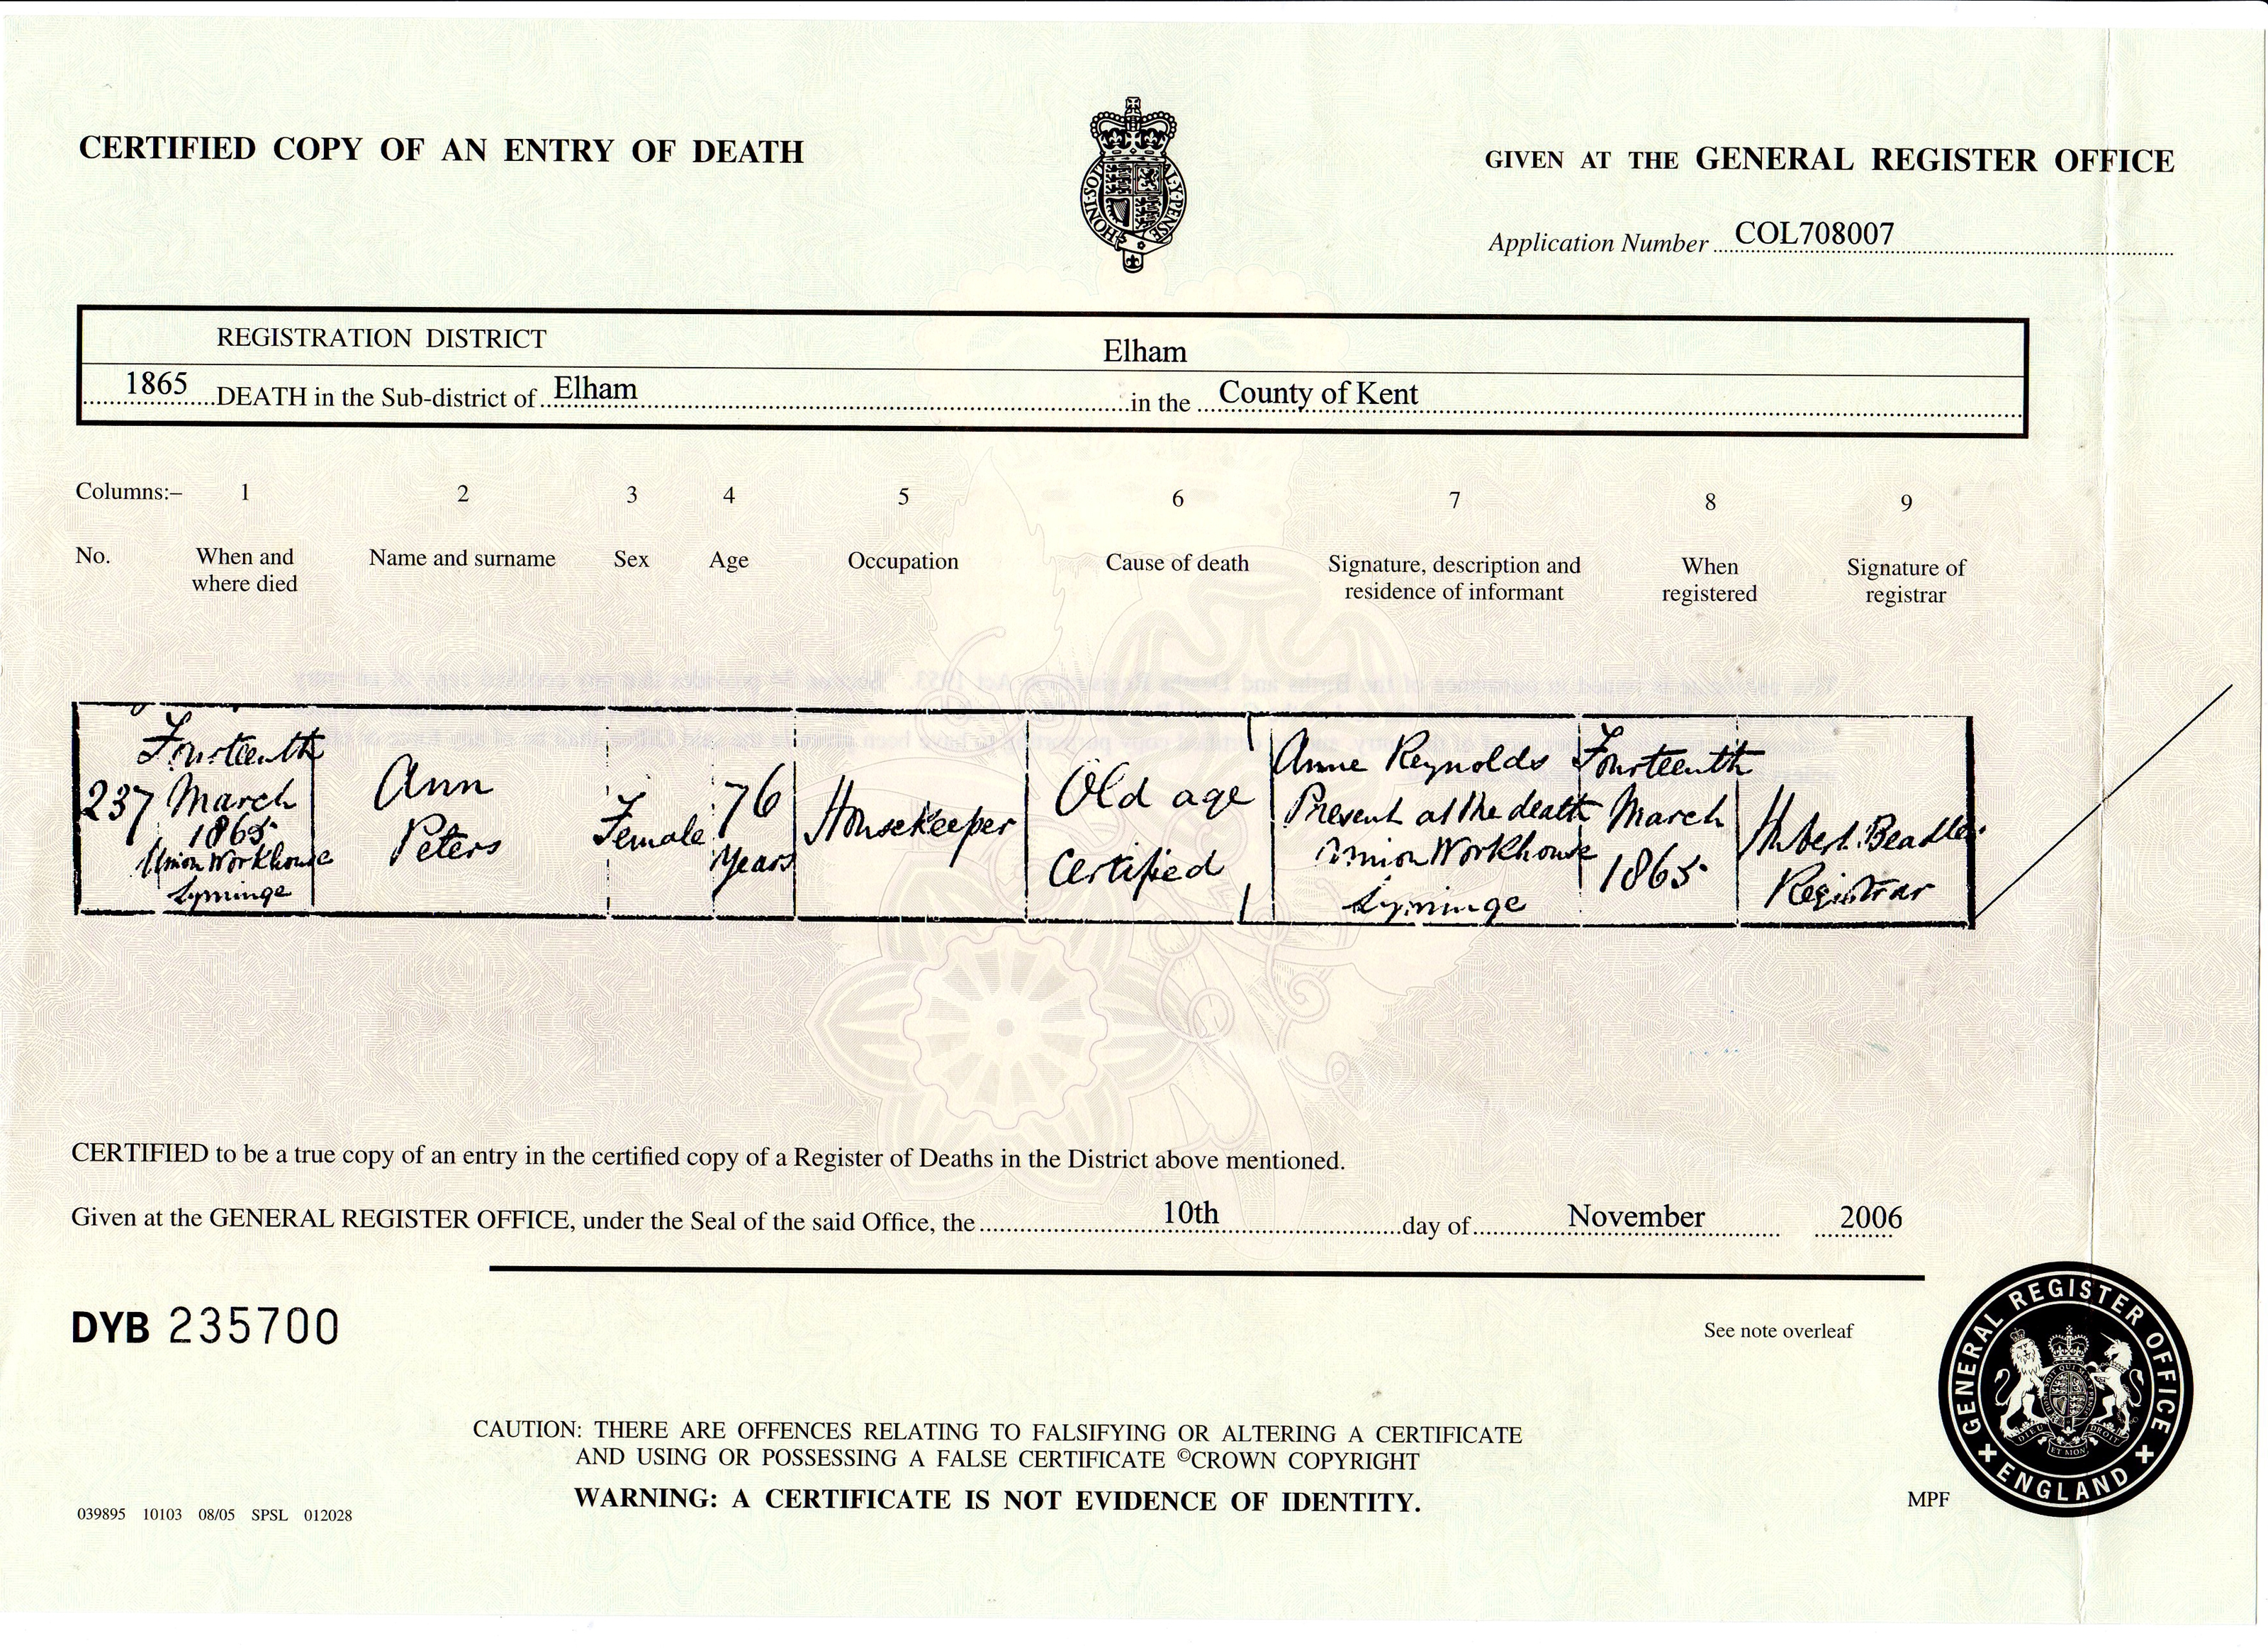 CERTIFIED COPY OF AN ENTRY OF DEATH
GIVEN AT THE GENERAL REGISTER OFFICE
HONI·SOI AL·Y·PENSE
Application Number COL708007
REGISTRATION DISTRICT Elham
1865 DEATH in the Sub-district of Elham in the County of Kent
Columns:– 1 2 3 4 5 6 7 8 9
No. When and where died Name and surname Sex Age Occupation Cause of death Signature, description and residence of informant When registered Signature of registrar
237
Fourteenth
March
1865
Union Workhouse
Lyminge
Ann
Peters
Female
76
Years
Housekeeper
Old age
Certified
Anne Reynolds
Present at the death
Union Workhouse
Lyminge
Fourteenth
March
1865
Hubert Beadle
Registrar
CERTIFIED to be a true copy of an entry in the certified copy of a Register of Deaths in the District above mentioned.
Given at the GENERAL REGISTER OFFICE, under the Seal of the said Office, the 10th day of November 2006
DYB 235700
See note overleaf
GENERAL REGISTER OFFICE
ENGLAND
CAUTION: THERE ARE OFFENCES RELATING TO FALSIFYING OR ALTERING A CERTIFICATE
AND USING OR POSSESSING A FALSE CERTIFICATE ©CROWN COPYRIGHT
WARNING: A CERTIFICATE IS NOT EVIDENCE OF IDENTITY.
039895 10103 08/05 SPSL 012028
MPF